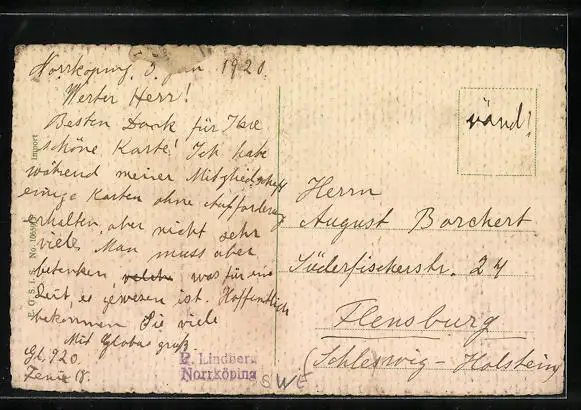 Norrköping, 3. Jan 1920.
Werter Herr!
Besten Dank für Ihre
schöne Karte! Ich habe
während meiner Mitgliedschaft
einige Karten ohne Aufforderung
erhalten, aber nicht sehr
viele. Man muss aber
bedenken, welche was für eine
Zeit, es gewesen ist. Hoffentlich
bekommen Sie viele
Mit Globus gruß
Gl. 920.
P. Lindberg
Norrköping
SWE
vänd!
Herrn
August Borchert
Süderfischerstr. 24
Flensburg
(Schleswig-Holstein)
Import